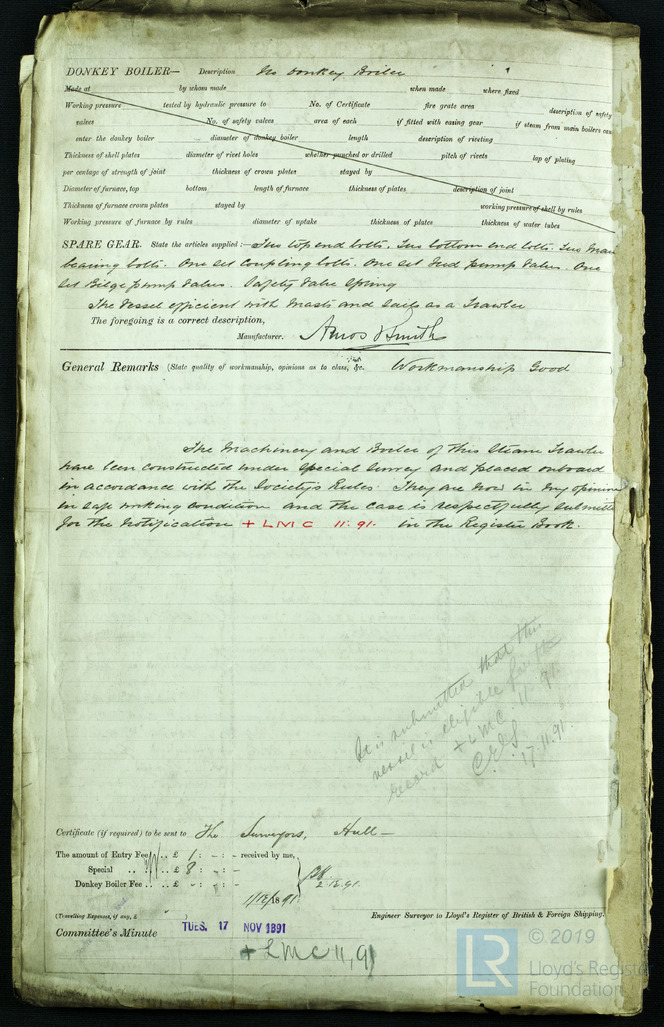 DONKEY BOILER— Description No Donkey Boiler
Made at by whom made when made where fixed
Working pressure tested by hydraulic pressure to No. of Certificate fire grate area description of safety
valves No. of safety valves area of each if fitted with easing gear if steam from main boilers can
enter the donkey boiler diameter of donkey boiler length description of riveting
Thickness of shell plates diameter of rivet holes whether punched or drilled pitch of rivets lap of plating
per centage of strength of joint thickness of crown plates stayed by
Diameter of furnace, top bottom length of furnace thickness of plates description of joint
Thickness of furnace crown plates stayed by working pressure of shell by rules
Working pressure of furnace by rules diameter of uptake thickness of plates thickness of water tubes
SPARE GEAR. State the articles supplied:— Two top end bolts. Two bottom end bolts. Two Main
bearing bolts. One set Coupling bolts. One set Feed pump Valves. One
set Bilge pump Valves. Safety Valve Spring
The Vessel efficient with Masts and Sails as a Trawler
The foregoing is a correct description,
Manufacturer. Amos & Smith
General Remarks (State quality of workmanship, opinions as to class, &c. Workmanship Good
The Machinery and Boiler of this Steam Trawler
have been constructed under special survey and placed onboard
in accordance with the Society's Rules. They are now in my opinion
in safe working condition and the case is respectfully submitted
for the Notification + LMC 11.91. in the Register Book.
It is submitted that this
vessel is eligible for the
record + LMC 11.91.
17.11.91.
Certificate (if required) to be sent to The Surveyors, Hull—
The amount of Entry Fee .. £ 1 : - : - received by me,
Special .. .. £ 8 : - : -
Donkey Boiler Fee .. .. £ - : - : - 2.12.91.
1/12/1891
(Travelling Expenses, if any, £
Engineer Surveyor to Lloyd's Register of British & Foreign Shipping.
Committee's Minute TUES. 17 NOV 1891
+ LMC 11,91
LR © 2019
Lloyd's Register
Foundation